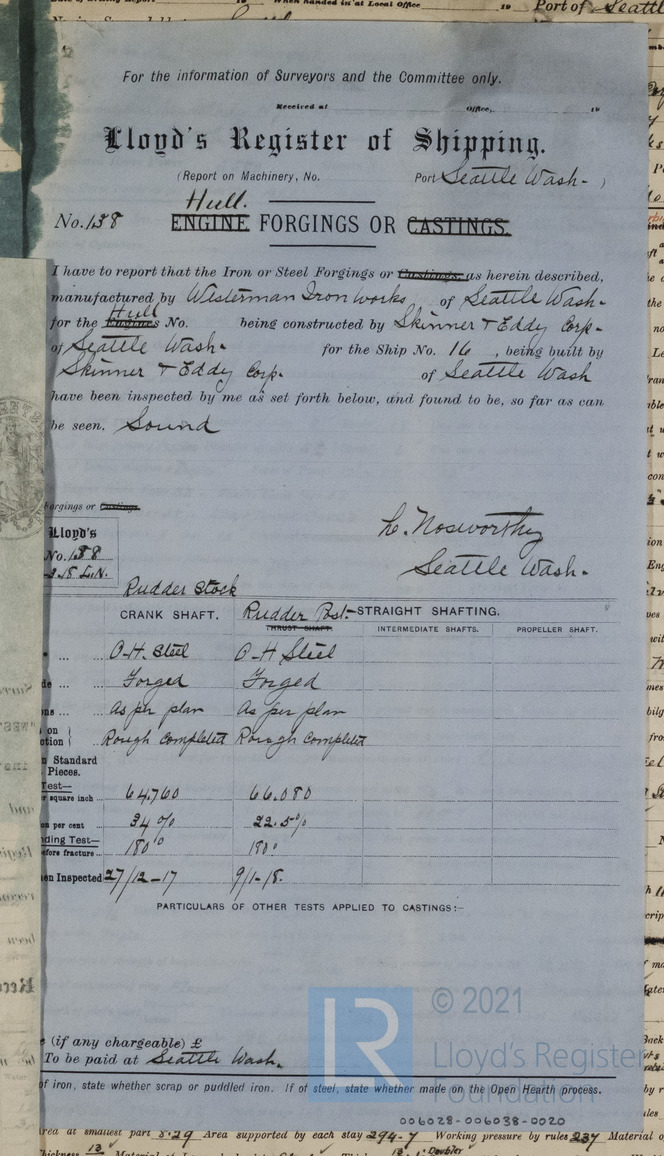 When handed in at Local Office 19 Port of Seattle
For the information of Surveyors and the Committee only.
Received at Office, 19
Lloyd's Register of Shipping.
(Report on Machinery, No. Port Seattle Wash- )
Hull.
No. 138 ENGINE FORGINGS OR CASTINGS.
I have to report that the Iron or Steel Forgings or Castings, as herein described,
manufactured by Westerman Iron works of Seattle Wash-
Hull
for the No. being constructed by Skinner & Eddy Corp-
of Seattle Wash- for the Ship No. 16, being built by
Skinner & Eddy Corp. of Seattle Wash
have been inspected by me as set forth below, and found to be, so far as can
be seen. Sound
Forgings or
Lloyd's
No. 138
L.N.
L. Noseworthy
Seattle Wash.
Rudder Stock
CRANK SHAFT. Rudder Post- STRAIGHT SHAFTING.
THRUST SHAFT. INTERMEDIATE SHAFTS. PROPELLER SHAFT.
... O-H. Steel O-H Steel
... Forged Forged
... As per plan As per plan
on
Rough completed Rough completed
Standard
Pieces.
Test—
square inch ... 64,760 66,080
per cent 34% 22.5%
Test—
before fracture ... 180° 180°
Inspected 27/12-17 9/1-18.
PARTICULARS OF OTHER TESTS APPLIED TO CASTINGS:—
(if any chargeable) £
To be paid at Seattle Wash.
of iron, state whether scrap or puddled iron. If of steel, state whether made on the Open Hearth process.
LR © 2021
Lloyd's Register
Foundation
006028-006038-0020
at smallest part 8.29 Area supported by each stay 294.7 Working pressure by rules 237 Material of
Doubler